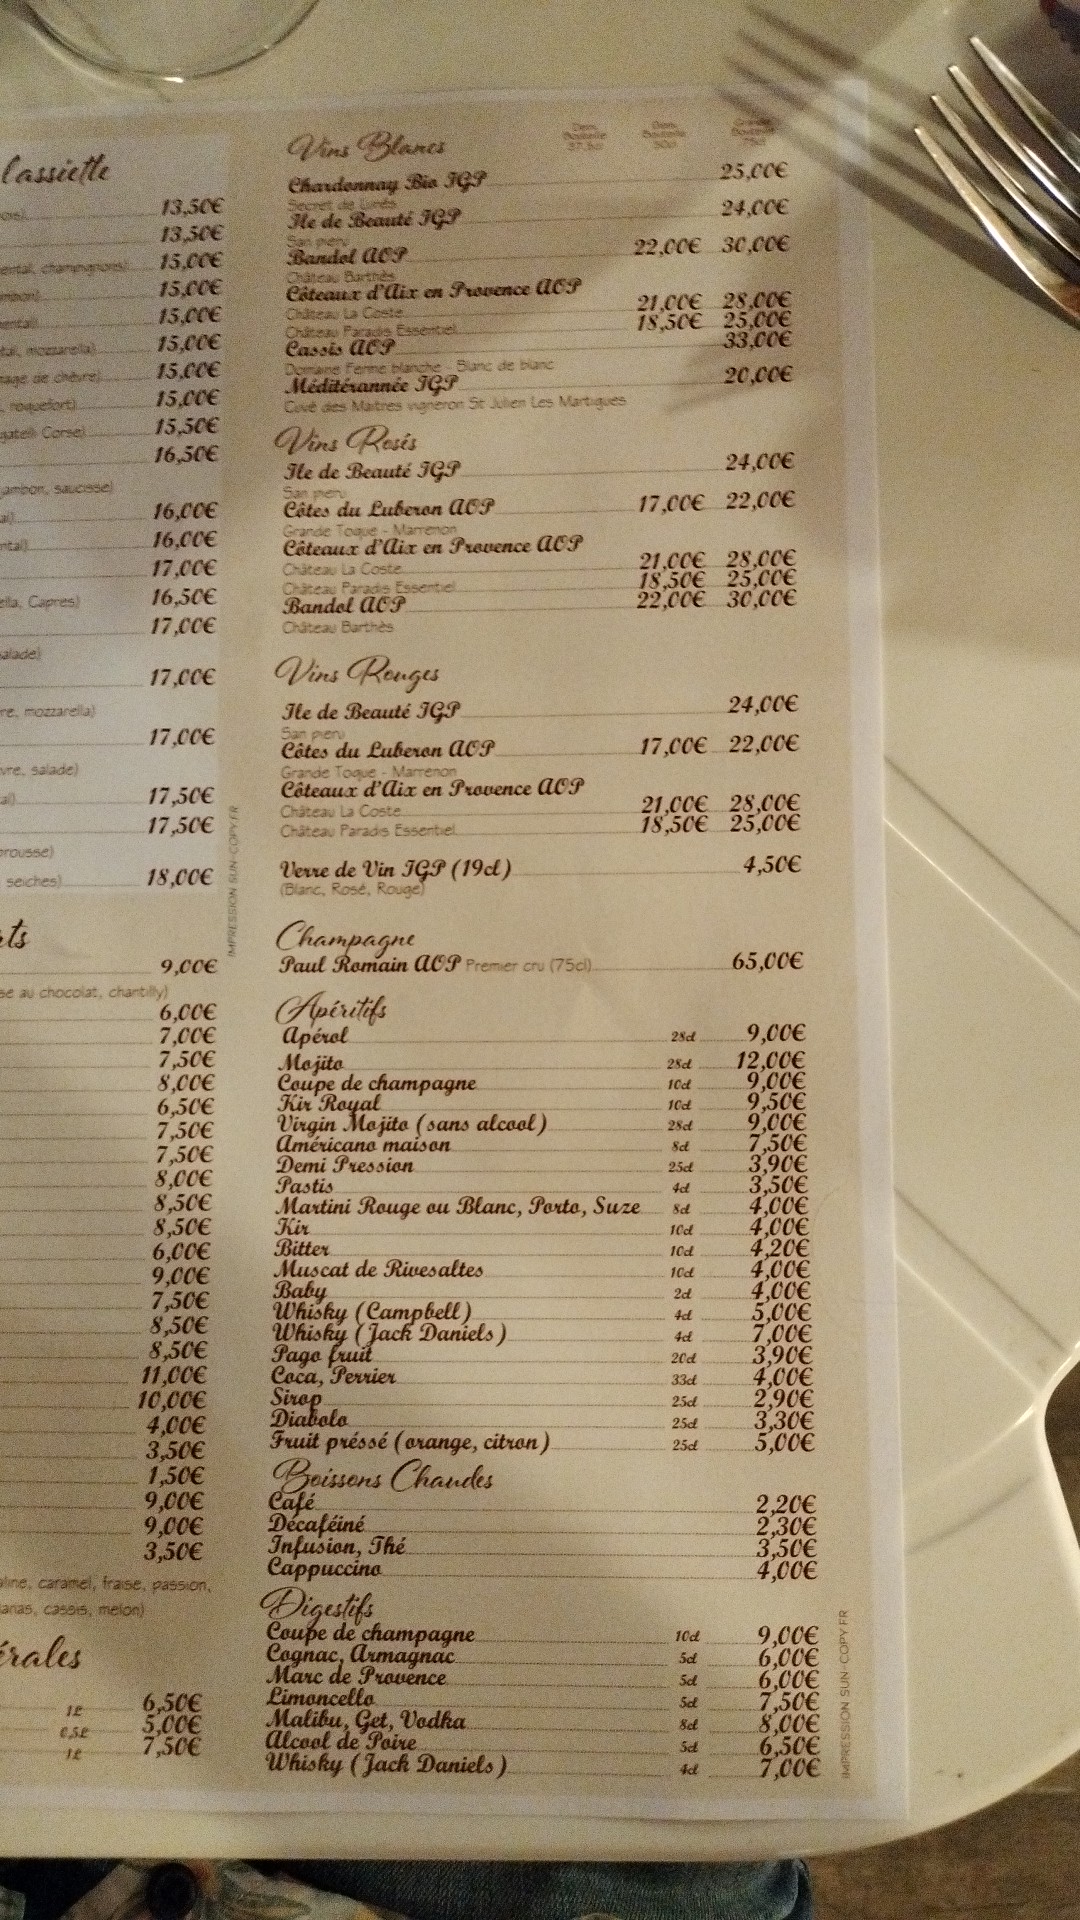 l'assiette
13,50€
13,50€
champignons) 15,00€
15,00€
15,00€
mozzarella) 15,00€
de chèvre) 15,00€
roquefort) 15,00€
Corse) 15,50€
16,50€
jambon, saucisse)
16,00€
16,00€
17,00€
Capres) 16,50€
17,00€
17,00€
mozzarella)
17,00€
salade)
17,50€
17,50€
seiches) 18,00€
9,00€
au chocolat, chantilly)
6,00€
7,00€
7,50€
8,00€
6,50€
7,50€
7,50€
8,00€
8,50€
8,50€
6,00€
9,00€
7,50€
8,50€
8,50€
11,00€
10,00€
4,00€
3,50€
1,50€
9,00€
9,00€
3,50€
caramel, fraise, passion,
cassis, melon)
1L 6,50€
0,5L 5,00€
1L 7,50€
IMPRESSION SUN-COPY.FR
Vins Blancs
Chardonnay Bio IGP 25,00€
Secret de Lunès
Ile de Beauté IGP 24,00€
San pieru
Bandol AOP 22,00€ 30,00€
Château Barthès
Côteaux d'Aix en Provence AOP
Château La Coste 21,00€ 28,00€
Château Paradis Essentiel 18,50€ 25,00€
Cassis AOP 33,00€
Domaine Ferme blanche - Blanc de blanc
Méditérannée IGP 20,00€
Cuvé des Maitres vigneron St Julien Les Martigues
Vins Rosés
Ile de Beauté IGP 24,00€
San pieru
Côtes du Luberon AOP 17,00€ 22,00€
Grande Toque - Marrenon
Côteaux d'Aix en Provence AOP
Château La Coste 21,00€ 28,00€
Château Paradis Essentiel 18,50€ 25,00€
Bandol AOP 22,00€ 30,00€
Château Barthès
Vins Rouges
Ile de Beauté IGP 24,00€
San pieru
Côtes du Luberon AOP 17,00€ 22,00€
Grande Toque - Marrenon
Côteaux d'Aix en Provence AOP
Château La Coste 21,00€ 28,00€
Château Paradis Essentiel 18,50€ 25,00€
Verre de Vin IGP (19cl) 4,50€
(Blanc, Rosé, Rouge)
Champagne
Paul Romain AOP Premier cru (75cl) 65,00€
Apéritifs
Apérol 28cl 9,00€
Mojito 28cl 12,00€
Coupe de champagne 10cl 9,00€
Kir Royal 10cl 9,50€
Virgin Mojito (sans alcool) 28cl 9,00€
Américano maison 8cl 7,50€
Demi Pression 25cl 3,90€
Pastis 4cl 3,50€
Martini Rouge ou Blanc, Porto, Suze 8cl 4,00€
Kir 10cl 4,00€
Bitter 10cl 4,20€
Muscat de Rivesaltes 10cl 4,00€
Baby 2cl 4,00€
Whisky (Campbell) 4cl 5,00€
Whisky (Jack Daniels) 4cl 7,00€
Pago fruit 20cl 3,90€
Coca, Perrier 33cl 4,00€
Sirop 25cl 2,90€
Diabolo 25cl 3,30€
Fruit préssé (orange, citron) 25cl 5,00€
Boissons Chaudes
Café 2,20€
Décaféiné 2,30€
Infusion, Thé 3,50€
Cappuccino 4,00€
Digestifs
Coupe de champagne 10cl 9,00€
Cognac, Armagnac 5cl 6,00€
Marc de Provence 5cl 6,00€
Limoncello 5cl 7,50€
Malibu, Get, Vodka 8cl 8,00€
Alcool de Poire 5cl 6,50€
Whisky (Jack Daniels) 4cl 7,00€
IMPRESSION SUN-COPY.FR